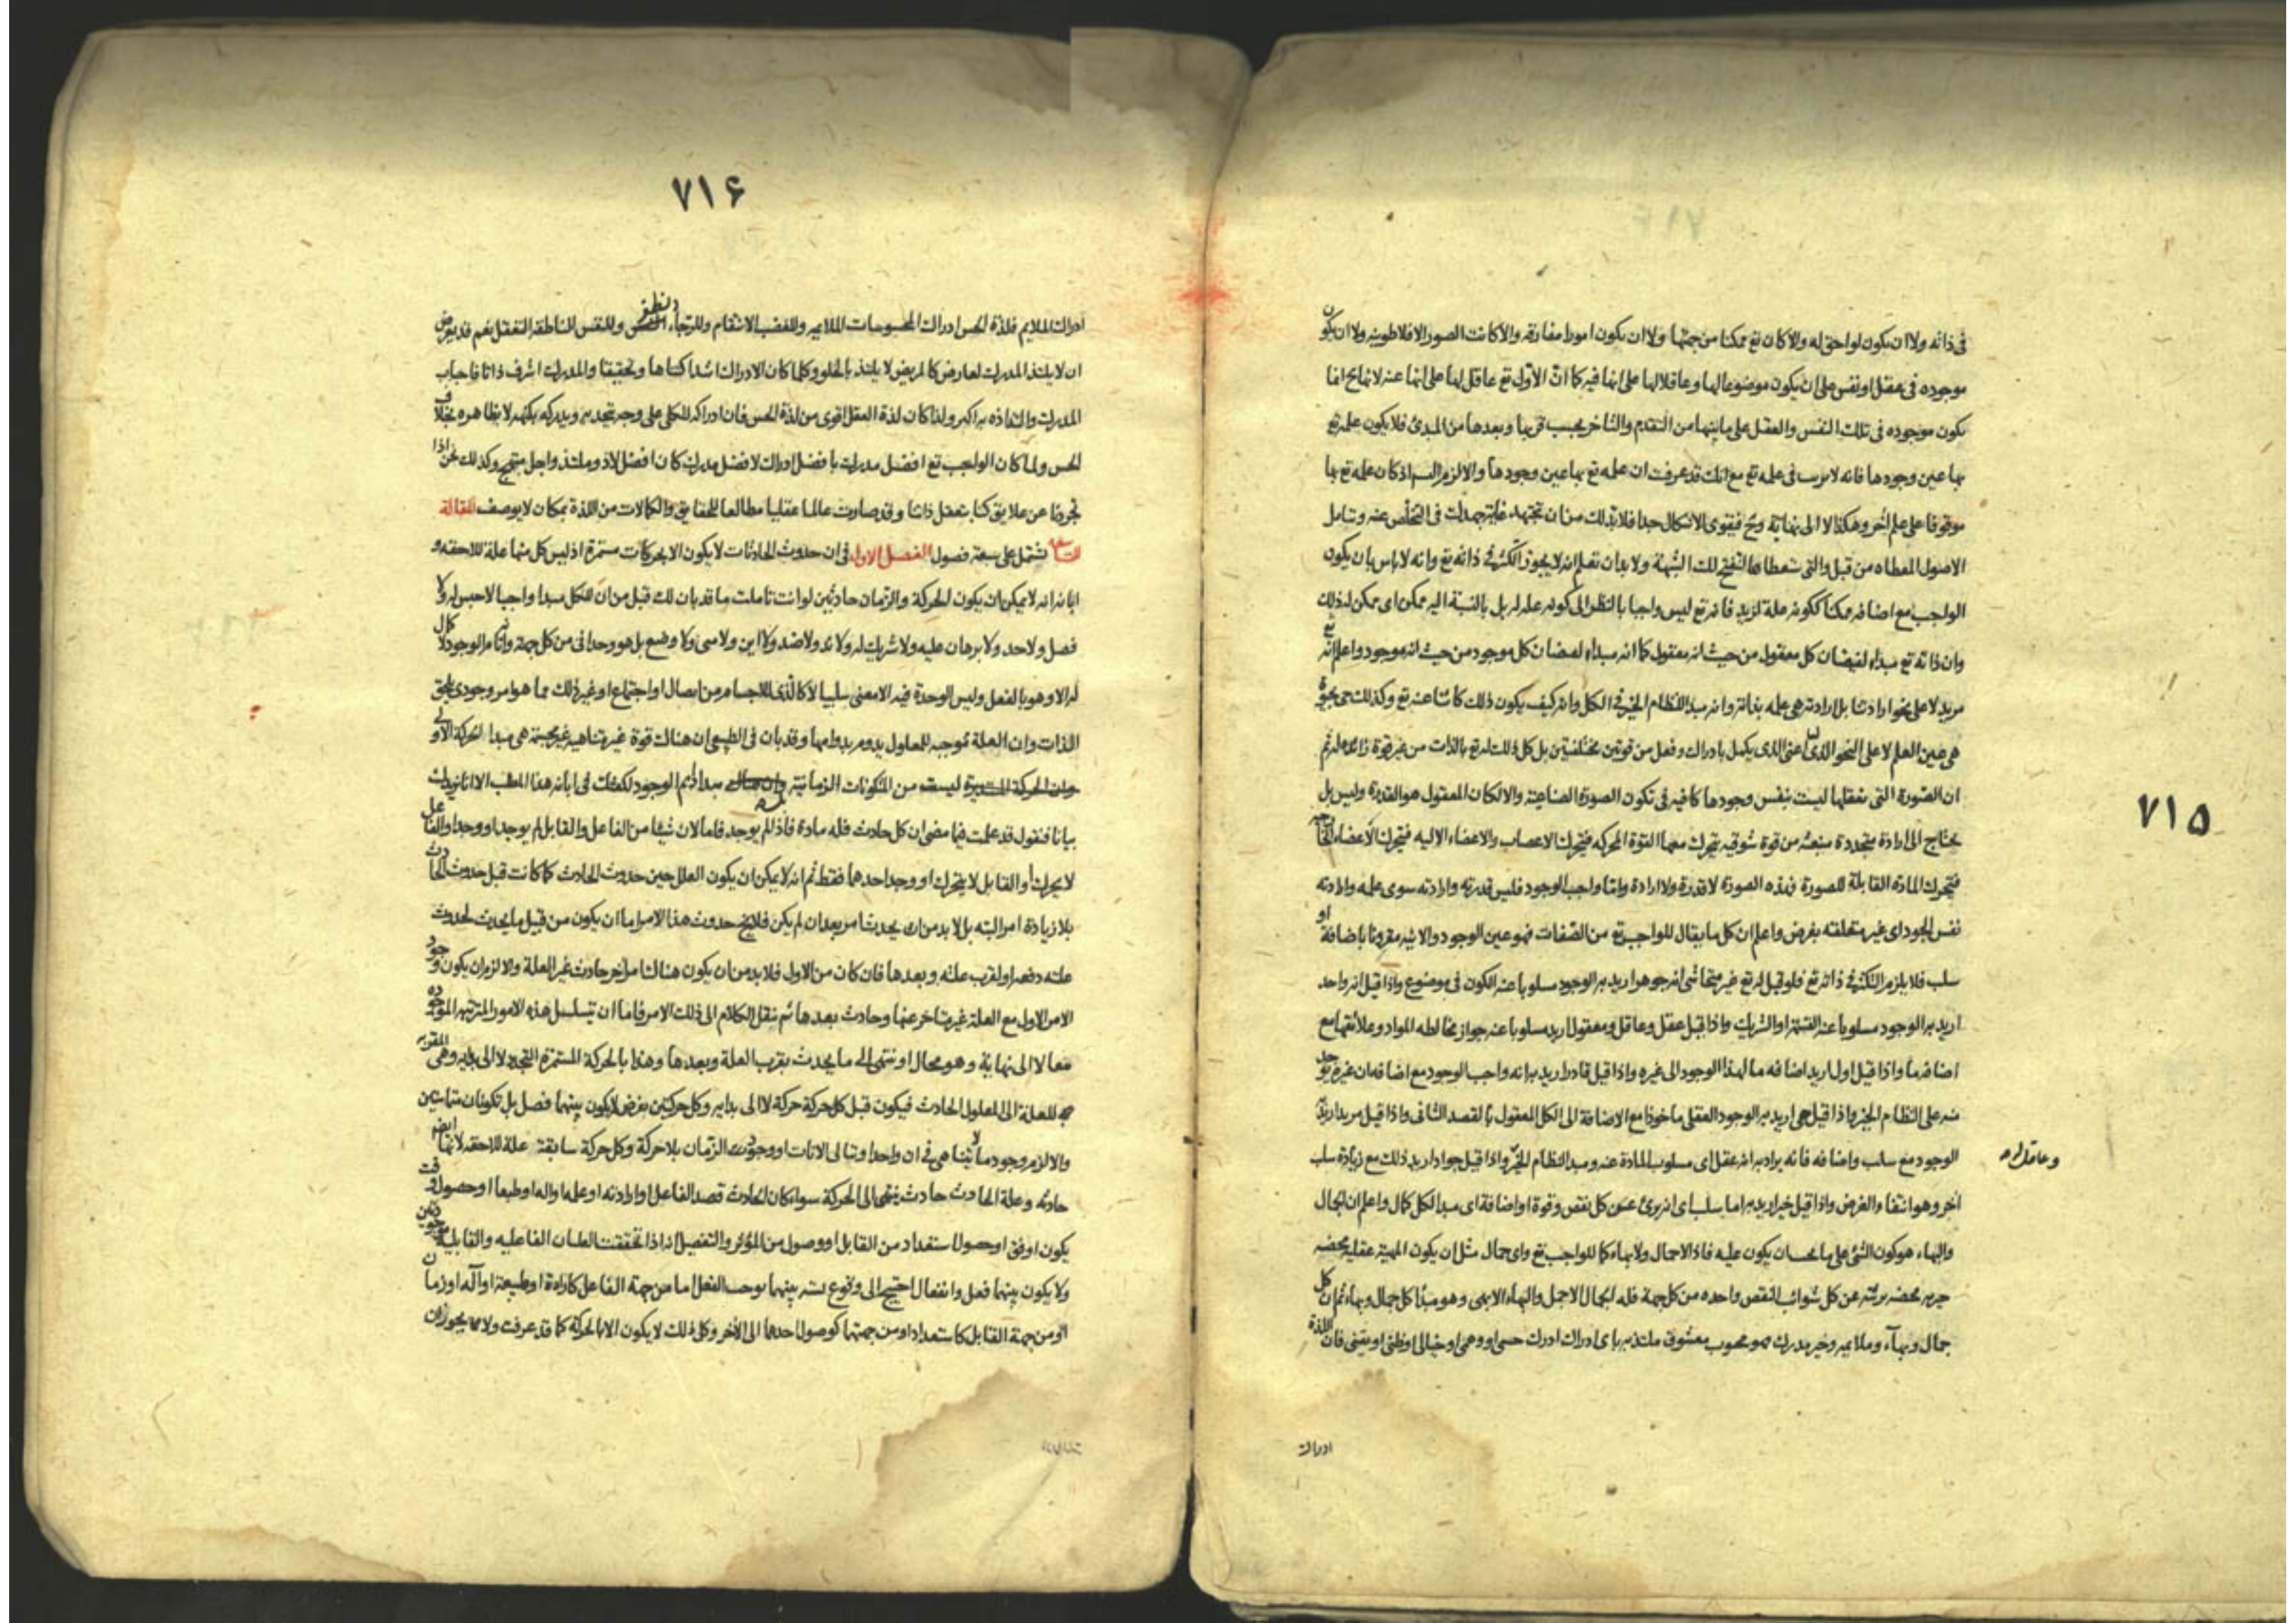 ٧١٥
فى ذاته ولا ان يكون لواحق له والا كان تع ممكنا من جهتها ولا ان يكون امورا مفارقه والا كانت الصور الافلاطونيه ولا ان يكون
موجوده فى عقل او نفس على ان يكون موضوعا لها وعاقلا لها على انها فيه كما ان الاول تع عاقل لها على انها عنه لانها ح اما
يكون موجوده فى تلك النفس والعقل على ما بينها من التقدم والتاخر بحسب قربها وبعدها من المبدئ فلا يكون علمه تع
بها عين وجودها فانه لا فى علمه تع مع انك قد عرفت ان علمه تع بها عين وجودها والا لزم التسـ اذ كان علمه تع بها
موقوفا على علم آخر وهكذا لا الى نهاية وح فيقوى الاشكال جدا فلا بد لك من ان تجتهد غاية جهدك فى التخلص عنه وتامل
الاصول المعطاه من قبل والتى ستعطاها لتنفتح لك الشبهة ولا بد ان تعلم انه لا يجوز التكثر فى ذاته تع وانه لا باس بان يكون
الواجب مع اضافه ممكنا ككونه علة لزيد فانه تع ليس واجبا بالنظر الى كونه علة له بل بالنسبة اليه ممكن اى ممكن له ذلك
وان ذاته تع مبداء لفيضان كل معقول من حيث انه معقول كما انه مبداء لفيضان كل موجود من حيث انه موجود واعلم انه تع
مريد لا على نحو ارادتنا بل ارادته هى علمه بذاته وانه مبدا النظام الخير فى الكل وانه كيف يكون ذلك كائنا عنه تع وكذلك حى بحيوة
هى عين العلم لا على النحو الذى لنا اعنى الذى يكمل بادراك وفعل من قوتين مختلفتين بل كل ذلك له تع بالذات من غير قوة زائده له ثم
ان الصورة التى نعقلها ليست بنفس وجودها كافيه فى تكون الصورة الصناعية والا لكان المعقول هو القدرة وليس بل
يحتاج الى ارادة متجددة منبعثه من قوة شوقيه يتحرك معها القوة المحركه فتحرك الاعصاب والاعضاء الاليه فتحرك الاعضاء الخارجه
فتحرك المادة القابلة للصورة فهذه الصورة لا قدرة ولا ارادة واما واجب الوجود فليس قدرته وارادته سوى علمه وارادته
نفس الجود اى غير متعلقه بغرض واعلم ان كل ما يقال للواجب تع من الصفات فهو عين الوجود والانيه مقرونا باضافة او
سلب فلا يلزم التكثر فى ذاته تع فلو قيل له تع غير متحاشى انه جوهر اريد به الوجود مسلوبا عنه الكون فى موضوع واذا قيل انه واحد
اريد به الوجود مسلوبا عنه القسمة او الشريك واذا قيل عقل وعاقل ومعقول اريد مسلوبا عنه جواز مخالطه المواد وعلائقها مع
اضافه ما واذا قيل اول اريد اضافه ما لهذا الوجود الى غيره واذا قيل قادر اريد به انه واجب الوجود مع اضافه ان غيره يوجد
منه على النظام الخير واذا قيل حى اريد به الوجود العقلى ماخوذا مع الاضافة الى الكل المعقول بالقصد الثانى واذا قيل مريد اريد
الوجود مع سلب واضافه فانه يراد به انه عقل اى مسلوب المادة عنه ومبدا النظام الخير واذا قيل جواد اريد ذلك مع زيادة سلب
آخر وهو انتفاء الغرض واذا قيل خير اريد به اما سلب اى انه برى عن كل نقص وقوة او اضافة اى مبدا لكل كمال واعلم ان الجمال
والبهاء هو كون الشئ على ما بحسان يكون عليه فاذا لا جمال ولا بهاء كما للواجب تع واى جمال مثل ان يكون المهية عقليه محضه
خيريه محضه بريئه عن كل شوائب النقص واحده من كل جهة فله الجمال الاجمل والبهاء الابهى وهو مبدا كل جمال وبهاء ثم ان كل
جمال وبهآء وملايم وخير مدرك فهو محبوب معشوق ملتذ به باى ادراك ادرك حسى او وهمى او خيالى او ظنى او يقينى فان اللذة
ادراك
٧١۶
ادراك الملايم فلذة الحس ادراك المحسوسات الملايمه وللغضب الانتقام وللرجاء الظفر وللنفس الناطقة التعقل نعم قد يعرض
ان لا يلتذ المدرك لعارض كالمريض لا يلتذ بالحلو وكلما كان الادراك اشد اكتناها وتحقيقا والمدرك اشرف ذاتا فاحباب
المدرك والتذاذه به اكبر ولذا كان لذة العقل اقوى من لذة الحس فان ادراكه للكلى على وجه يتحد به ويدركه بكنهه لا بظاهره بخلاف
الحس ولما كان الواجب تع افضل مدرك بافضل ادراك لافضل مدرك كان افضل لاذ وملتذ واجل مبتهج وكذلك نحن اذا
تجردنا عن علايق كنا بتعقل ذاتنا وقد صارت عالما عقليا مطالعا للحقايق والكمالات من اللذة بمكان لا يوصف المقالة
التاسعة تشتمل على سبعة فصول الفصل الاول فى ان حدوث الحادثات لا يكون الا بحركات مستمرة اذ ليس كل منها علة للاحقه و
ابانه انه لا يمكن ان يكون الحركة والزمان حادثين لو انت تاملت ما قد بان لك قبل من ان للكل مبدا واجبا لا جنس له ولا
فصل ولا حد ولا برهان عليه ولا شريك له ولا ند ولا ضد ولا اين ولا متى ولا وضع بل هو وحدانى من كل جهة وانه تام الوجود لا كمال
له الا وهو بالفعل وليس الوحدة فيه الا معنى سلبيا لا كالذى للاجسام من اتصال او اجتماع او غير ذلك مما هو امر وجودى يلحق
الذات وان العلة موجبه للمعلول يدوم بدوامها وقد بان فى الطبيعى ان هناك قوة غير متناهيه غير جسمية هى مبدا الحركة الاولى
وان الحركة المستديرة ليست من التكونات الزمانية مبدا دايم الوجود لكفتك فى ابانه هذا المطلب الا انا نزيدك
بيانا فنقول قد علمت فيما مضى ان كل حادث فله مادة فاذا لم يوجد فاما لان شيئا من الفاعل والقابل لم يوجد او وجدا والفاعل
لا يحرك او القابل لا يتحرك او وجد احدهما فقط ثم انه لا يمكن ان يكون العلل حين حدوث الحادث كما كانت قبل حدوث الحادث
بلا زيادة امر البته بل لا بد من ان يحدث امر بعد ان لم يكن فلا يخ حدوث هذا الامر اما ان يكون من قبيل ما يحدث لحدوث
علته دفعه او لقرب علته وبعدها فان كان من الاول فلا بد من ان يكون هناك امر آخر حادث غير العلة والا لزم ان يكون وجود
الامر الاول مع العلة غير متاخر عنها وحادث بعدها ثم ننقل الكلام الى ذلك الامر فاما ان تتسلسل هذه الامور المترتبه الموجوده
معا لا الى نهاية وهو محال او ننتهى الى ما يحدث بقرب العلة وبعدها وهذا بالحركة المستمرة المتجدده لا الى بدايه وهى المقربه
للعلة الى المعلول الحادث فيكون قبل كل حركة حركة لا الى بدايه وكل حركتين نفرض لا يكون بينهما فصل بل تكونان متماستين
والا لزم وجود ما لا يتناهى فى ان واحد او تتالى الانات او وجود الزمان بلا حركة وكل حركة سابقة علة للاحقه لانها ايضم
حادثه وعلة الحادث حادث ينتهى الى الحركة سواء كان الحادث قصد الفاعل او ارادته او علمه او اله او طبعا او حصول وقت
يكون اوفق او حصول استعداد من القابل او وصول من المؤثر والتفصيل انه اذا تحققت العلتان الفاعليه والقابليه
ولا يكون بينهما فعل وانفعال احتيج الى وقوع نسبه بينهما توجب الفعل اما من جهة الفاعل كارادة او طبيعة او آله او زمان
او من جهة القابل كاستعداد او من جهتهما كوصول احدهما الى الآخر وكل ذلك لا يكون الا بالحركة كما قد عرفت ولا مما يجوز ان